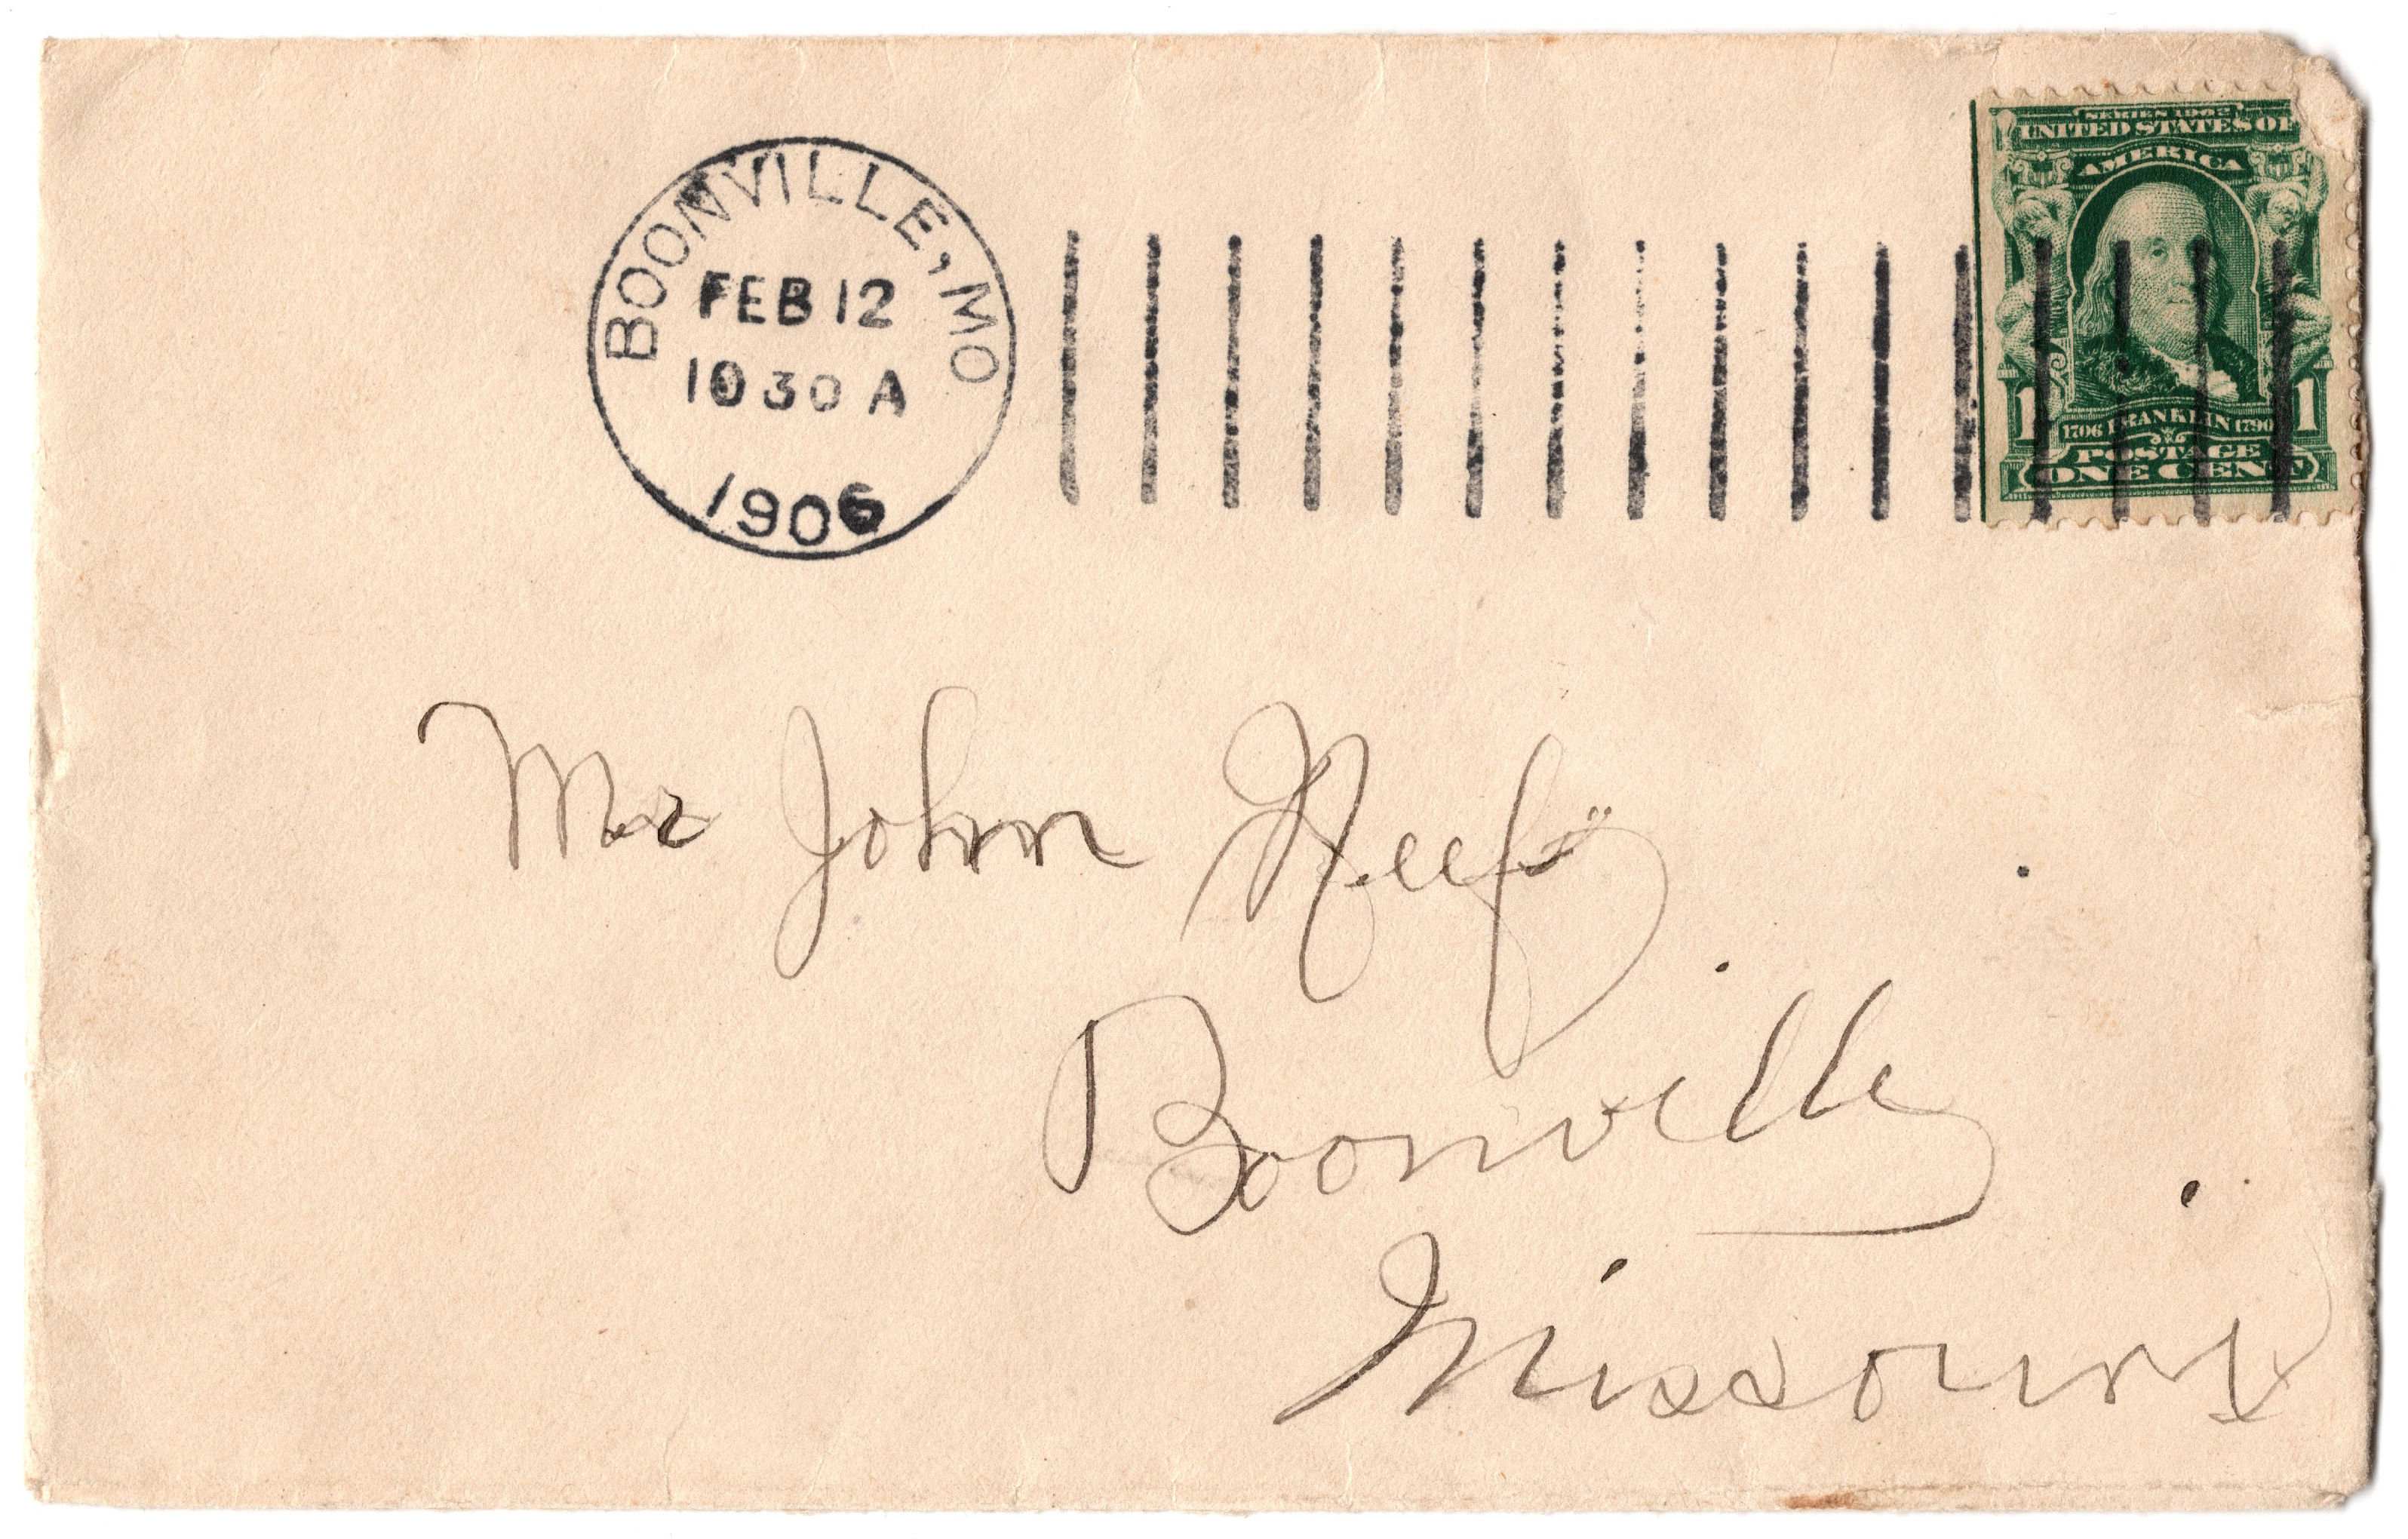 BOONVILLE, MO
FEB 12
10 30 A
1906
SERIES 1902
UNITED STATES OF
AMERICA
1 1
1706 FRANKLIN 1790
POSTAGE
ONE CENT
Mr John Neef
Boonville
Missouri